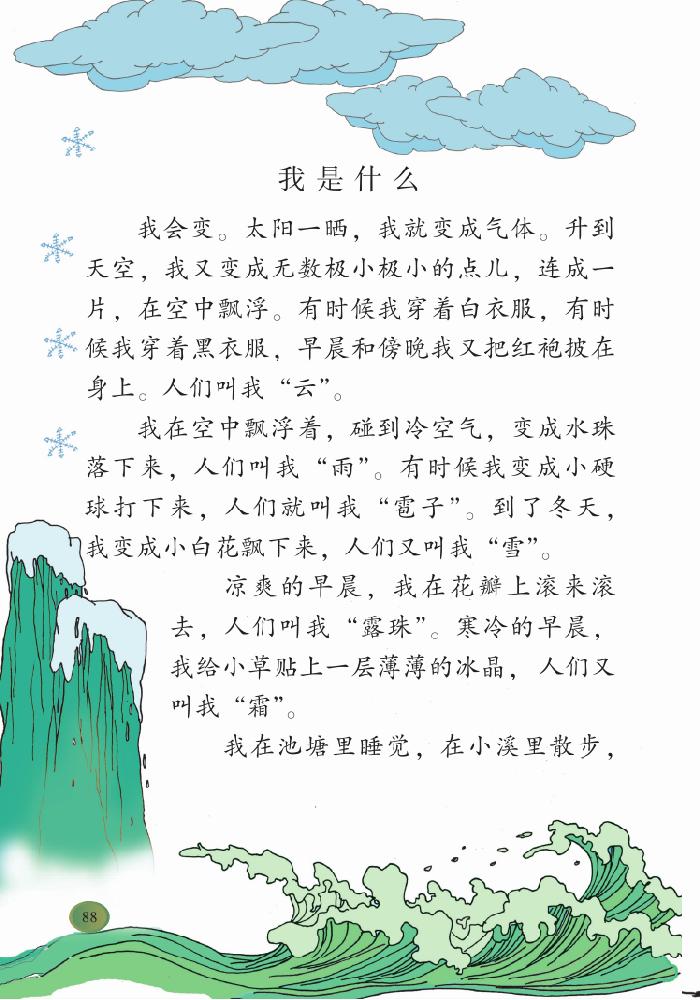 我是什么
我会变。太阳一晒，我就变成气体。升到
天空，我又变成无数极小极小的点儿，连成一
片，在空中飘浮。有时候我穿着白衣服，有时
候我穿着黑衣服，早晨和傍晚我又把红袍披在
身上。人们叫我“云”。
我在空中飘浮着，碰到冷空气，变成水珠
落下来，人们叫我“雨”。有时候我变成小硬
球打下来，人们就叫我“雹子”。到了冬天，
我变成小白花飘下来，人们又叫我“雪”。
凉爽的早晨，我在花瓣上滚来滚
去，人们叫我“露珠”。寒冷的早晨，
我给小草贴上一层薄薄的冰晶，人们又
叫我“霜”。
我在池塘里睡觉，在小溪里散步，
88